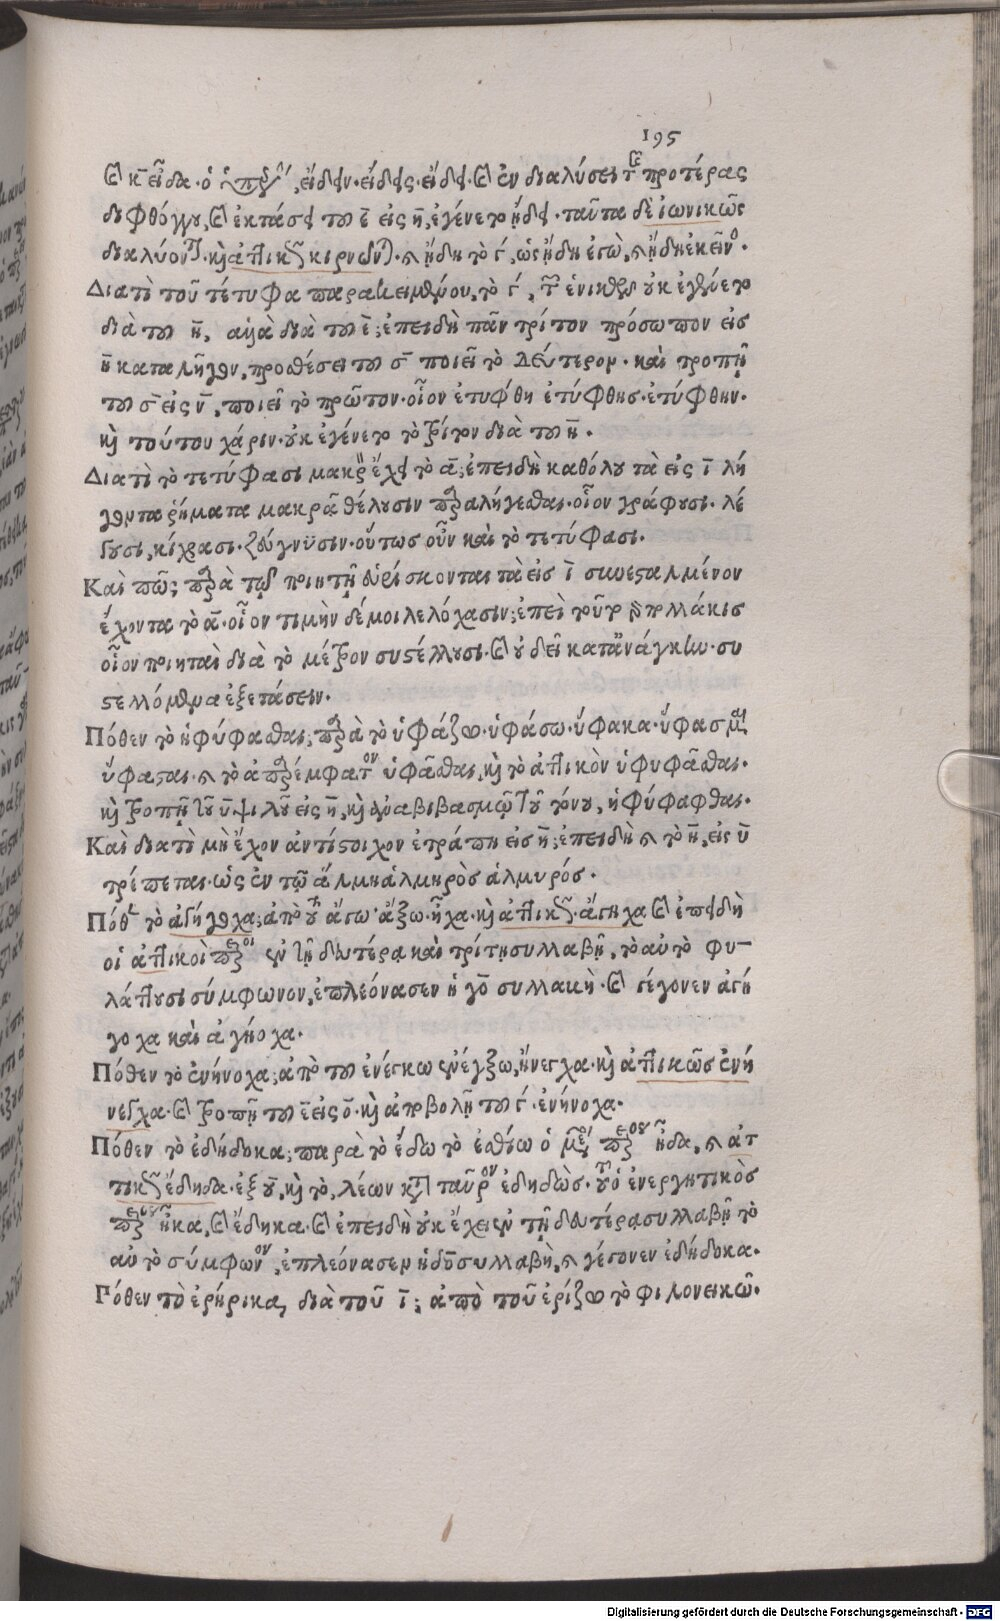 195
καὶ εἶδα· ὁ ὑπερσυντέλικος, εἴδειν· εἴδεις· εἴδει· καὶ ἐν διαλύσει τῆς προτέρας
διφθόγγου, καὶ ἐκτάσει τοῦ ε̄ εἰς η̄, ἐγένετο ἤδει· ταῦτα δὲ ἰωνικῶς
διαλύονται· καὶ ἀττικῶς κιρνῶνται· καὶ ἤδη τὸ γ΄, ὡς ᾔδη ἐγὼ, καὶ ᾔδη ἐκεῖνος·
Διατὶ τοῦ τέτυφα παρακειμένου, τὸ γ΄, τῶν ἑνικῶν οὐκ ἐγένετο
διὰ τοῦ η̄, ἀλλὰ διὰ τοῦ ε̄; ἐπειδὴ πᾶν τρίτον πρόσωπον εἰς
η̄ καταλῆγον, προσθέσει τοῦ σ̄ ποιεῖ τὸ δεύτερον· καὶ τροπῇ
τοῦ σ̄ εἰς ν̄, ποιεῖ τὸ πρῶτον· οἷον ἐτύφθη ἐτύφθης· ἐτύφθην·
καὶ τούτου χάριν· οὐκ ἐγένετο τὸ τρίτον διὰ τοῦ η̄.
Διατὶ τὸ τετύφασι μακρὸν ἔχει τὸ ᾱ; ἐπειδὴ καθόλου τὰ εἰς ῑ λή
γοντα ῥήματα μακρᾷ θέλουσιν παραλήγεσθαι· οἷον γράφουσι· λέ
γουσι, κίχρασι· ζευγνῦσιν· οὕτως οὖν καὶ τὸ τετύφασι.
Καὶ πῶς παρὰ τῷ ποιητῇ εὑρίσκονται τὰ εἰς ῑ συνεσταλμένον
ἔχοντα τὸ ᾱ· οἷον τιμὴν δέ μοι λελόχασιν; ἐπεὶ τοῦτο πολλάκις
οἷον ποιηταὶ διὰ τὸ μέτρον συστέλλουσι· καὶ οὐ δεῖ κατανάγκην· συ
στελλόμενα ἐξετάσειν.
Πόθεν τὸ ὑφύφασθαι; παρὰ τὸ ὑφάζω· ὑφάσω· ὕφακα· ὕφασμαι
ὕφασται· καὶ τὸ ἀπαρέμφατον ὑφᾶσθαι, καὶ τὸ ἀττικὸν ὑφυφᾶσθαι.
καὶ τροπῇ τοῦ ῡ ψιλοῦ εἰς η̄, καὶ ἀναβιβασμῷ τοῦ τόνου, ἡφύφασθαι.
Καὶ διατὶ μὴ ἔχον ἀντίστοιχον ἐτράπη εἰς η̄; ἐπειδὴ καὶ τὸ η̄, εἰς ῡ
τρέπεται· ὡς ἐν τῷ ἅλμη ἁλμηρὸς ἁλμυρός.
Πόθεν τὸ ἀγήγοχα; ἀπὸ τοῦ ἄγω· ἄξω· ἦχα· καὶ ἀττικῶς· ἄγηχα καὶ ἐπειδὴ
οἱ ἀττικοὶ ἐν τῇ δευτέρᾳ καὶ τρίτῃ συλλαβῇ, τὸ αὐτὸ φυ–
λάττουσι σύμφωνον, ἐπλεόνασεν ἡ γο̄ συλλαβὴ· καὶ γέγονεν ἀγή
γοχα καὶ ἀγήοχα.
Πόθεν τὸ ἐνήνοχα; ἀπὸ τοῦ ἐνέγκω ἐνέγξω, ἤνεγχα· καὶ ἀττικῶς ἐνή
νεγχα· καὶ τροπῇ τοῦ ε̄ εἰς ο̄· καὶ ἀποβολῇ τοῦ γ΄· ἐνήνοχα.
Πόθεν τὸ ἐδήδοκα; παρὰ τὸ ἔδω τὸ ἐσθίω ὁ μέσος παρακείμενος ἦδα, καὶ ἀτ
τικῶς ἔδηδα· ἐξ οὗ, καὶ τὸ, λέων κατὰ ταῦρον ἐδηδὼς· τούτου ὁ ἐνεργητικὸς
παρακείμενος ἦκα, καὶ ἔδηκα· καὶ ἐπειδὴ οὐκ ἔχει ἐν τῇ δευτέρᾳ συλλαβῇ τὸ
αὐτὸ σύμφωνον, ἐπλεόνασεν ἡ δο̄ συλλαβὴ, καὶ γέγονεν ἐδήδοκα.
Πόθεν τὸ ἐρήρικα, διὰ τοῦ ῑ; ἀπὸ τοῦ ἐρίζω τὸ φιλονεικῶ.
Digitalisierung gefördert durch die Deutsche Forschungsgemeinschaft - DFG